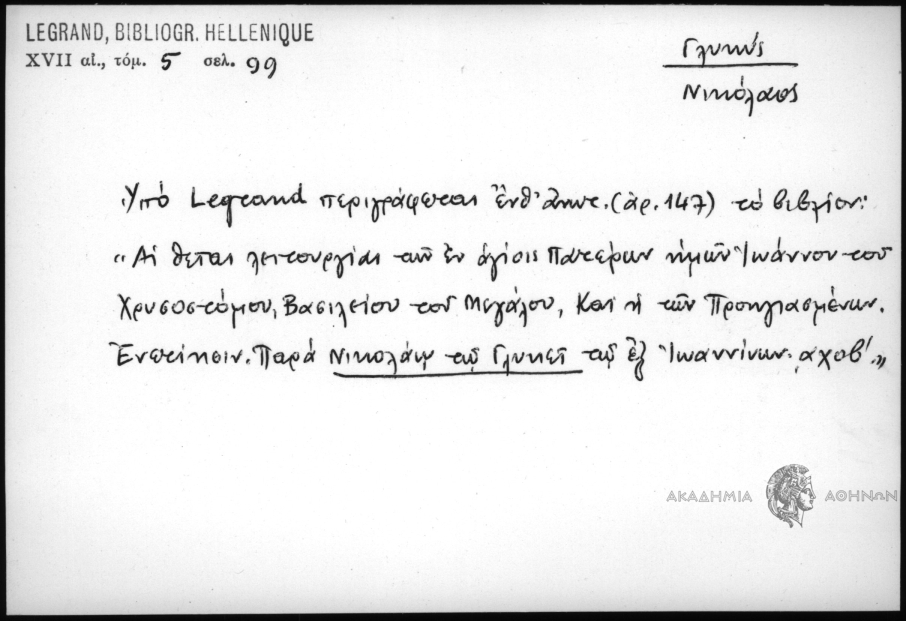 LEGRAND, BIBLIOGR. HELLENIQUE
XVII αἰ., τόμ. 5 σελ. 99
Γλυκύς
Νικόλαος
Ὑπό Legrand περιγράφεται ἔνθ' ἀνωτ. (ἀρ. 147) τό βιβλίον:
"Αἱ θεῖαι λειτουργίαι τῶν ἐν ἁγίοις Πατέρων ἡμῶν Ἰωάννου τοῦ
Χρυσοστόμου, Βασιλείου τοῦ Μεγάλου, καί ἡ τῶν Προηγιασμένων.
Ἐνετίησιν. Παρά Νικολάῳ τῷ Γλυκεῖ τῷ ἐξ Ἰωαννίνων. ͵αχοβ΄."
ΑΚΑΔΗΜΙΑ ΑΘΗΝΩΝ